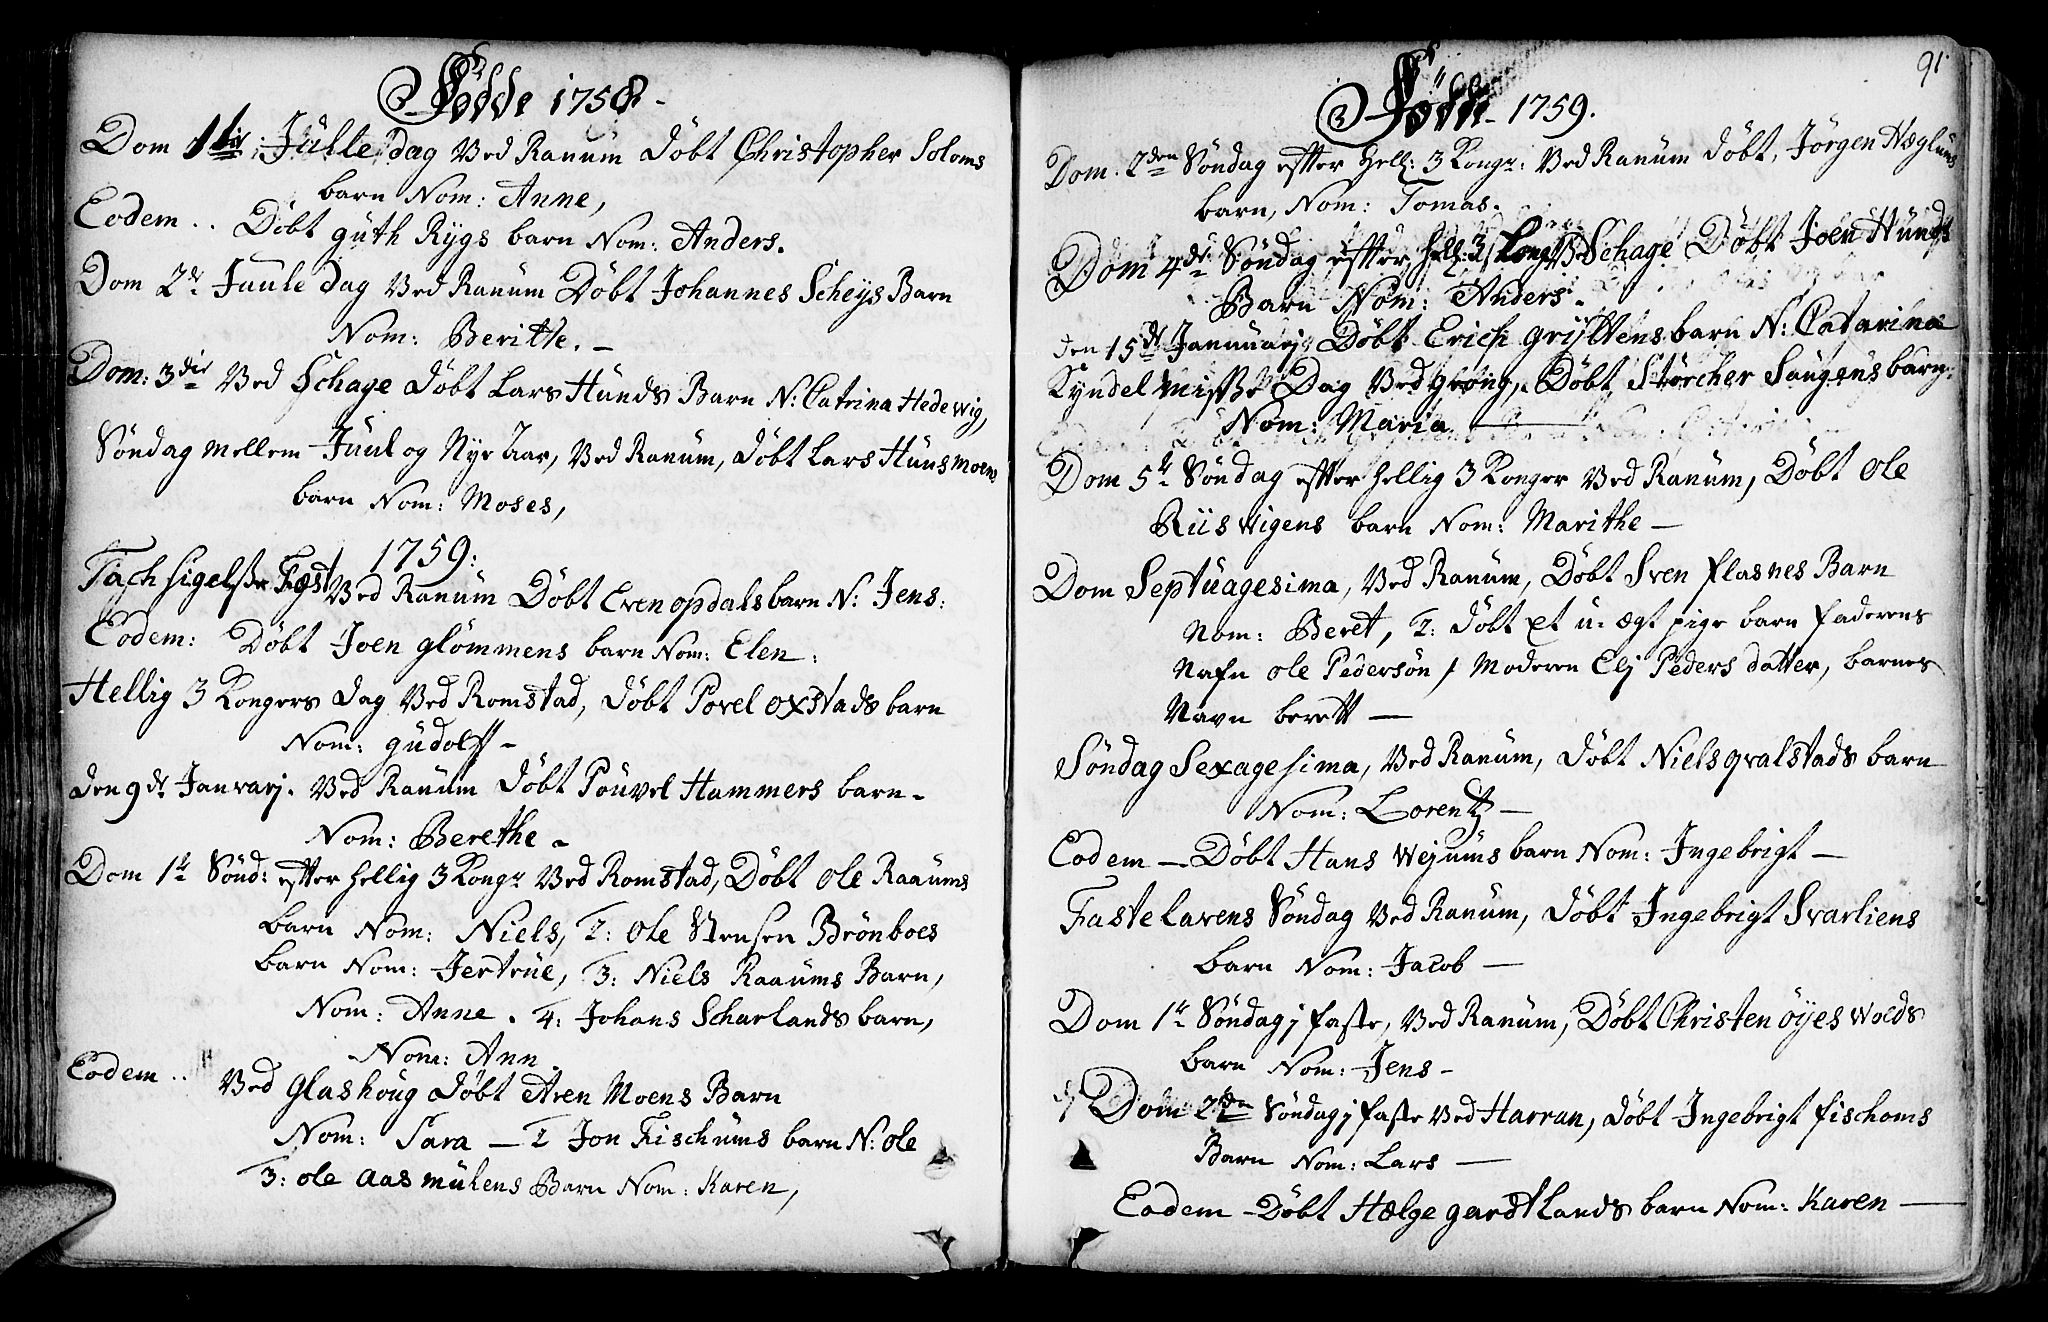 Födde 1758-
Dom 1te: Julle dag Ved Ranum döbt Christopher Soloms
barn Nom: Anne,
Eodem .. Döbt guth Rygs barn Nom: Anders.
Dom 2de Juule dag Ved Ranum Döbt Johannes Scheys Barn
Nom: Berithe. -
Dom: 3die Ved Schage döbt Lars Hunds Barn N: Catrina Hedewig,
Söndag mellem Juul og Nye Aar, Ved Ranum, döbt Lars Hunsmoens
barn Nom: Moses,
1759:
Tachsigelsse Fæst Ved Ranum Döbt Even opdals barn N: Jens:
Eodem: Döbt Joen glömmens barn Nom: Elen:
Hellig 3 Kongers dag Ved Romstad, döbt Povel oxstads barn
Nom: gudolff -
den 9de Janvarj. Ved Ranum döbt Pouvel Hammers barn -
Nom: Berethe -
Dom 1te Sönd: efter hellig 3 Kongr Ved Romstad, Döbt Ole Raaums
barn Nom: Niels, 2: Ole Stensen Brönboes
barn Nom: Jertrue, 3: Niels Raaums Barn,
Nom: Anne. 4: Johans Scharlands barn,
Nom: Ann
Eodem .. Ved Glashoug döbt Aren Moens Barn
Nom: Sara - 2 Jon Fischums barn N: ole
3: ole Aasmulens Barn Nom: Karen,
91.
Födde 1759.
Dom. 2den Söndag efter Hell: 3 Kongr: Ved Ranum döbt, Jörgen Hæglums
barn, Nom: Tomas.
Dom 4de Söndag efter Hell: 3 Kong Ved Schage Döbt Joen Hunds
Barn Nom: Anders -
den 15de Januuarj Döbt Erich gryttens barn N: Catarina
Kyndelmisse Dag Ved grong, Döbt Störcher Saugens barn,
Nom: Maria
Dom 5te Söndag efter hellig 3 Konger Ved Ranum, Döbt Ole
Riiswigens barn Nom: Marithe -
Dom Septuagesima, Ved Ranum, Döbt Sven flasnes Barn
Nom: Beret, 2: döbt et u-ægt pige barn faderens
Nafn ole Pedersön / Moderen Elj Peders datter, barnes
Navn berett -
Söndag Sexagesima, Ved Ranum, döbt Niels gralstads barn
Nom: Lorentz -
Eodem - Döbt Hans Wejums barn Nom: Ingebrigt -
Fastelavens Söndag Ved Ranum, döbt Ingebrigt Svarliens
barn Nom: Jacob -
Dom 1te Söndag j faste, Ved Ranum, Döbt Christen öyeswolds
barn Nom: Jens -
Dom 2den Söndag j faste Ved Harran, döbt Ingebrigt fischoms
Barn Nom: Lars -
Eodem - Döbt Hælge gardtlands barn Nom: Karen -